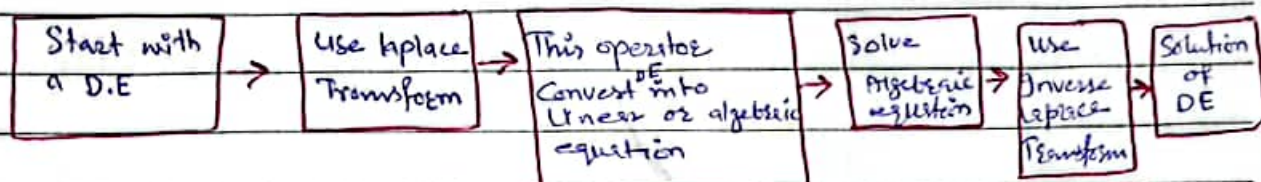 Start with
a D.E
Use Laplace
Transform
This operator
DE
Convert into
Linear or algebraic
equation
Solve
Algebraic
equation
Use
Inverse
Laplace
Transform
Solution
of
DE